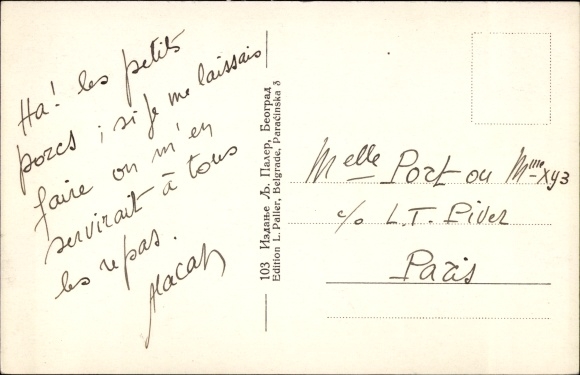 Ha! les petits
porcs ; si je me laissais
faire on m'en
servirait à tous
les repas.
103 Издање Љ. Палер, Београд
Edition L. Palier, Belgrade, Paraćinska 8
Melle Port ou Mme xyz
c/o L.T. Piver
Paris